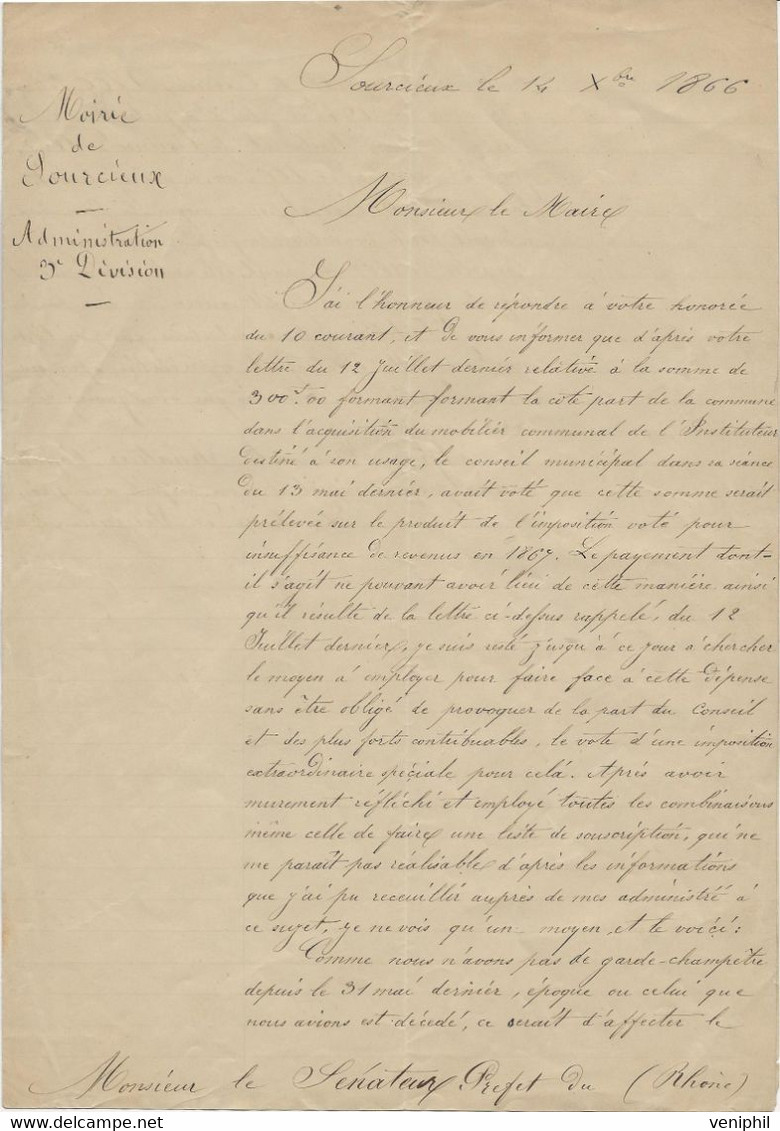 Sourcieux le 14 Xbre 1866
Mairie
de
Sourcieux
Administration
3e Division
Monsieur le Maire
J'ai l'honneur de répondre à votre honorée
du 10 courant, et de vous informer que d'après votre
lettre du 12 Juillet dernier relative à la somme de
300f.00 formant formant la côte part de la commune
dans l'acquisition du mobilier communal de l'Instituteur
destiné à son usage, le conseil municipal dans sa séance
du 13 mai dernier, avait voté que cette somme serait
prélevée sur le produit de l'imposition voté pour
insuffisance de revenus en 1867. Le payement dont-
il s'agit ne pouvant avoir lieu de cette manière ainsi
qu'il résulte de la lettre ci-dessus rappelé, du 12
Juillet dernier, je suis resté jusqu'à ce jour à chercher
le moyen à employer pour faire face à cette dépense
sans être obligé de provoquer de la part du Conseil
et des plus forts contribuables, le vote d'une imposition
extraordinaire spéciale pour celà. Après avoir
murement réfléchi et employé toutes les combinaisons
même celle de faire une liste de souscription, qui ne
me paraît pas réalisable d'après les informations
que j'ai pu receuillir auprès de mes administré à
ce sujet, je ne vois qu'un moyen, et le voici :
Comme nous n'avons pas de garde-champêtre
depuis le 31 mai dernier, époque ou celui que
nous avions est décédé, ce serait d'affecter le
Monsieur le Sénateur Préfet du (Rhône)
www.delcampe.net
veniphil